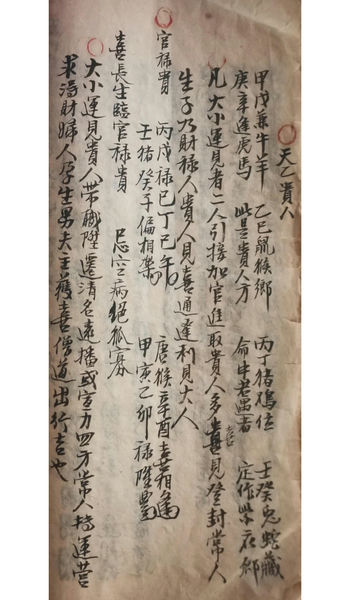 天乙貴人
甲戊兼牛羊 乙己鼠猴鄉 丙丁猪鸡位 壬癸兔蛇藏
庚辛逢虎馬 此是貴人方 命中若遇者 定作紫衣郎
凡大小運見者二人引接加官進取貴人多喜見登封常人
生子乃財禄人貴人見喜通達利見大人
官禄貴 丙戊禄巳丁己午 庚猴辛酉喜相逢
壬猪癸子偏相樂 甲寅乙卯禄隆豊
喜長生臨官禄貴 忌空病絕孤寡
大小運見貴人帶職陞遷清名遠播或宣力四方常人持運营
求得財婦人孕生男夫主獲喜僧道出行吉也